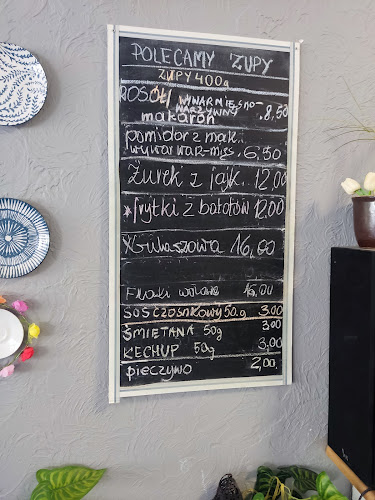 POLECAMY ZUPY
ZUPY 400g
ROSÓŁ/ WYWAR MIĘSNO-
WARZYWNY
makaron .8,50
pomidor z mak.
wywar war-mięs. 6,50
Żurek z jajk. 12,00
*frytki z batatów 12,00
Gulaszowa 16,00
Flaki wołowe 16,00
SOS CZOSNKOWY 50.g 3,00
ŚMIETANA 50g 3,00
KECHUP 50g 3,00
pieczywo 2,00